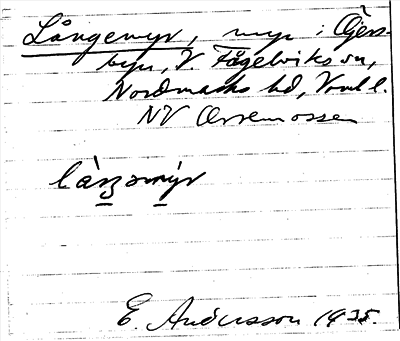 Långemyr, myr i Gjers-
byn, V. Fågelviks sn,
Nordmarks hd, Vrml l.
NV Orremossen
làŋəmýr
E. Andersson 1935.